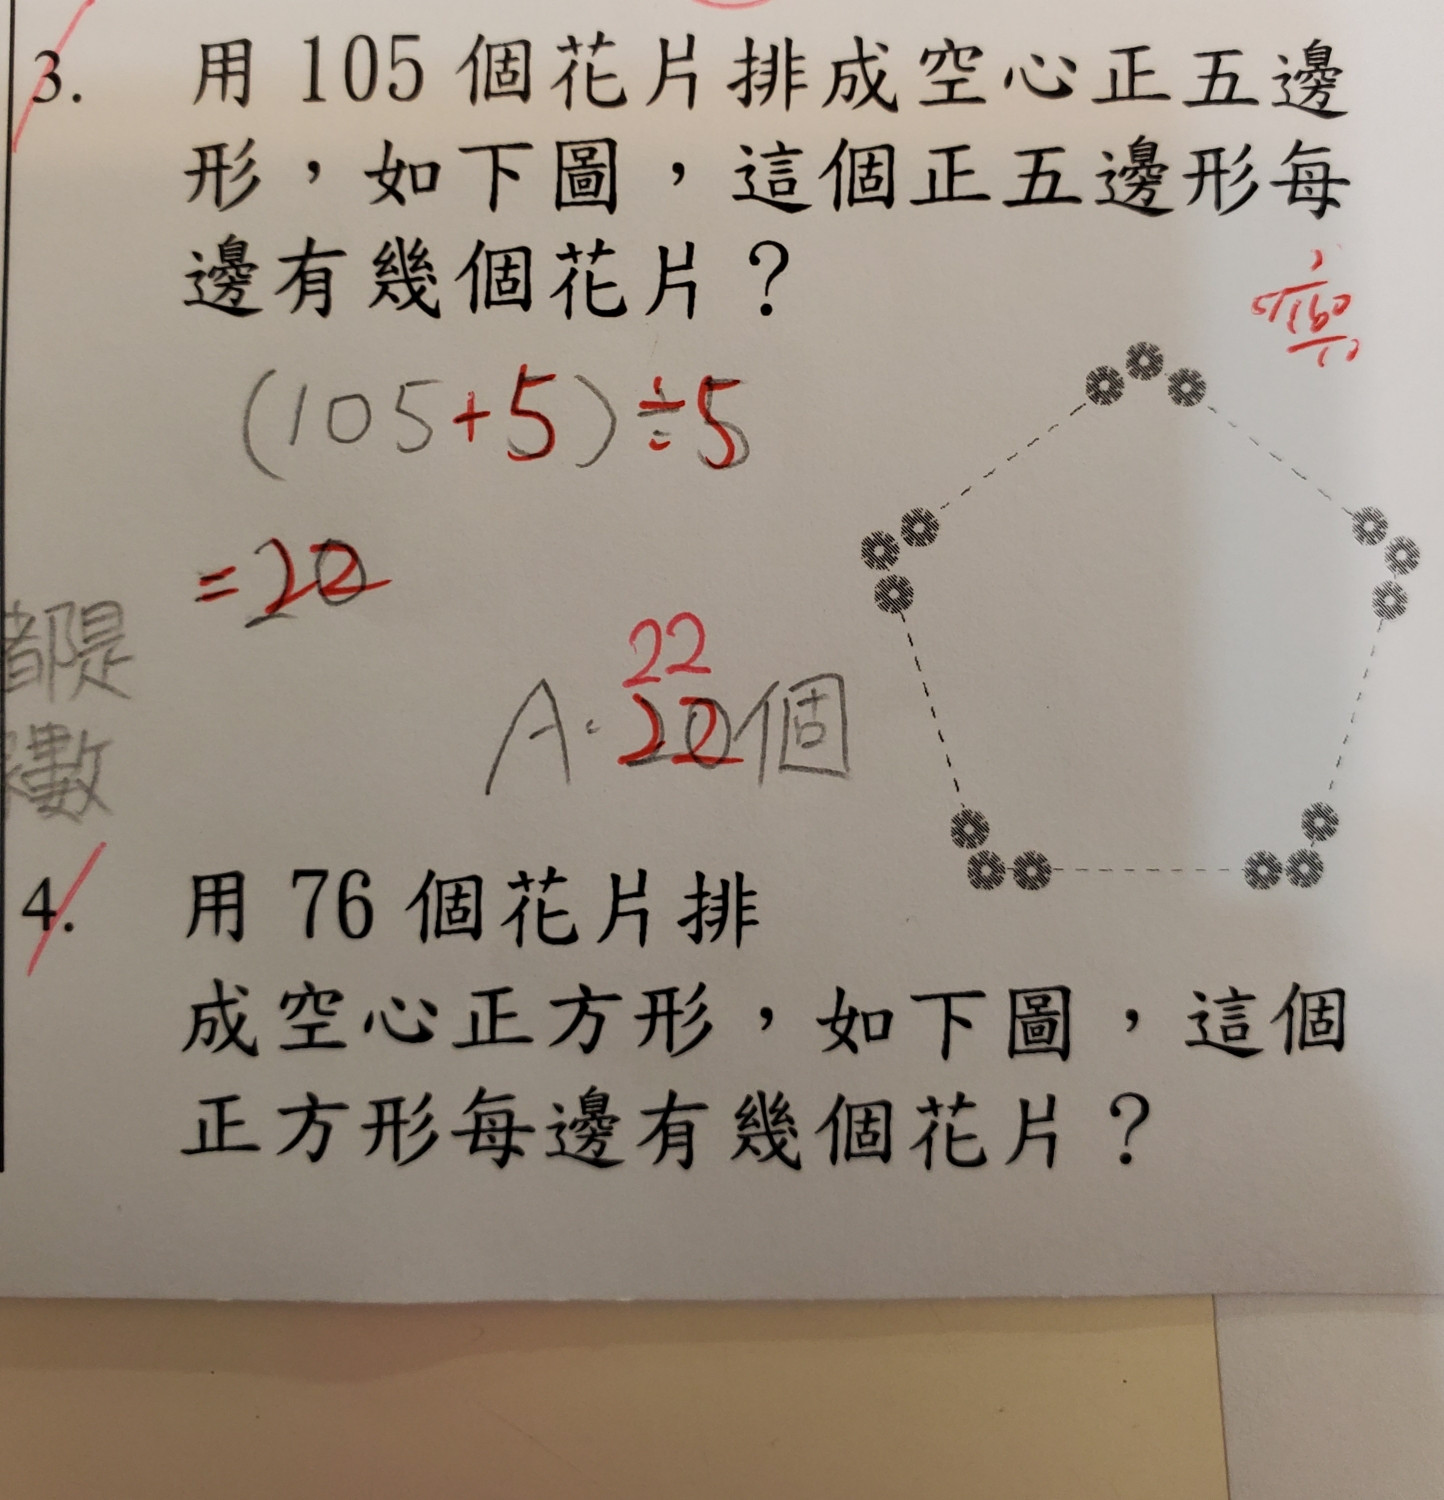 3. 用 105 個花片排成空心正五邊
形，如下圖，這個正五邊形每
邊有幾個花片？
(105+5)÷5
=22
都是
數
22
A:22個
4. 用 76 個花片排
成空心正方形，如下圖，這個
正方形每邊有幾個花片？